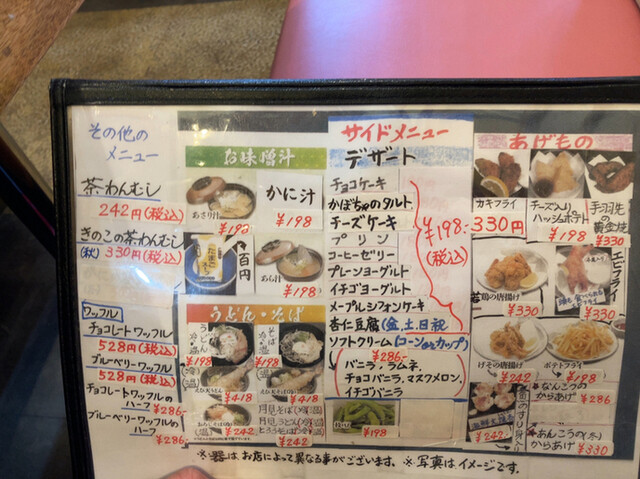 その他の
メニュー
茶わんむし
242円(税込)
きのこの茶わんむし
(秋) 330円(税込)
ワッフル
チョコレートワッフル
528円(税込)
ブルーベリーワッフル
528円(税込)
チョコレートワッフルの
ハーフ ¥286-
ブルーベリーワッフルの
ハーフ
¥286-
お味噌汁
あさり汁
¥198
かに汁
¥198
百円
あら汁
¥198
うどん・そば
うどん
¥198
そば
¥198
¥418
¥418
¥242
月見そば
月見うどん
とろろそば
¥242
サイドメニュー
デザート
チョコケーキ
かぼちゃのタルト
チーズケーキ
プリン
コーヒーゼリー
プレーンヨーグルト
イチゴヨーグルト
メープルシフォンケーキ
¥198-
(税込)
杏仁豆腐(金,土,日祝
ソフトクリーム(コーンorカップ)
¥286-
バニラ,ラムネ,
チョコバニラ,マスクメロン,
イチゴバニラ
枝豆
¥198
あげもの
カキフライ
330円
チーズ入り
ハッシュポテト
¥198
手羽先
の
黄金焼
¥330
若鶏の唐揚げ
¥330
エビフライ
頭も食べられる
¥330
げその唐揚げ
¥242
ポテトフライ
¥198
¥242
なんこつの
からあげ
¥286
あんこうの(冬)
からあげ
¥330
※器は、お店によって異なる事がございます。※写真はイメージです。